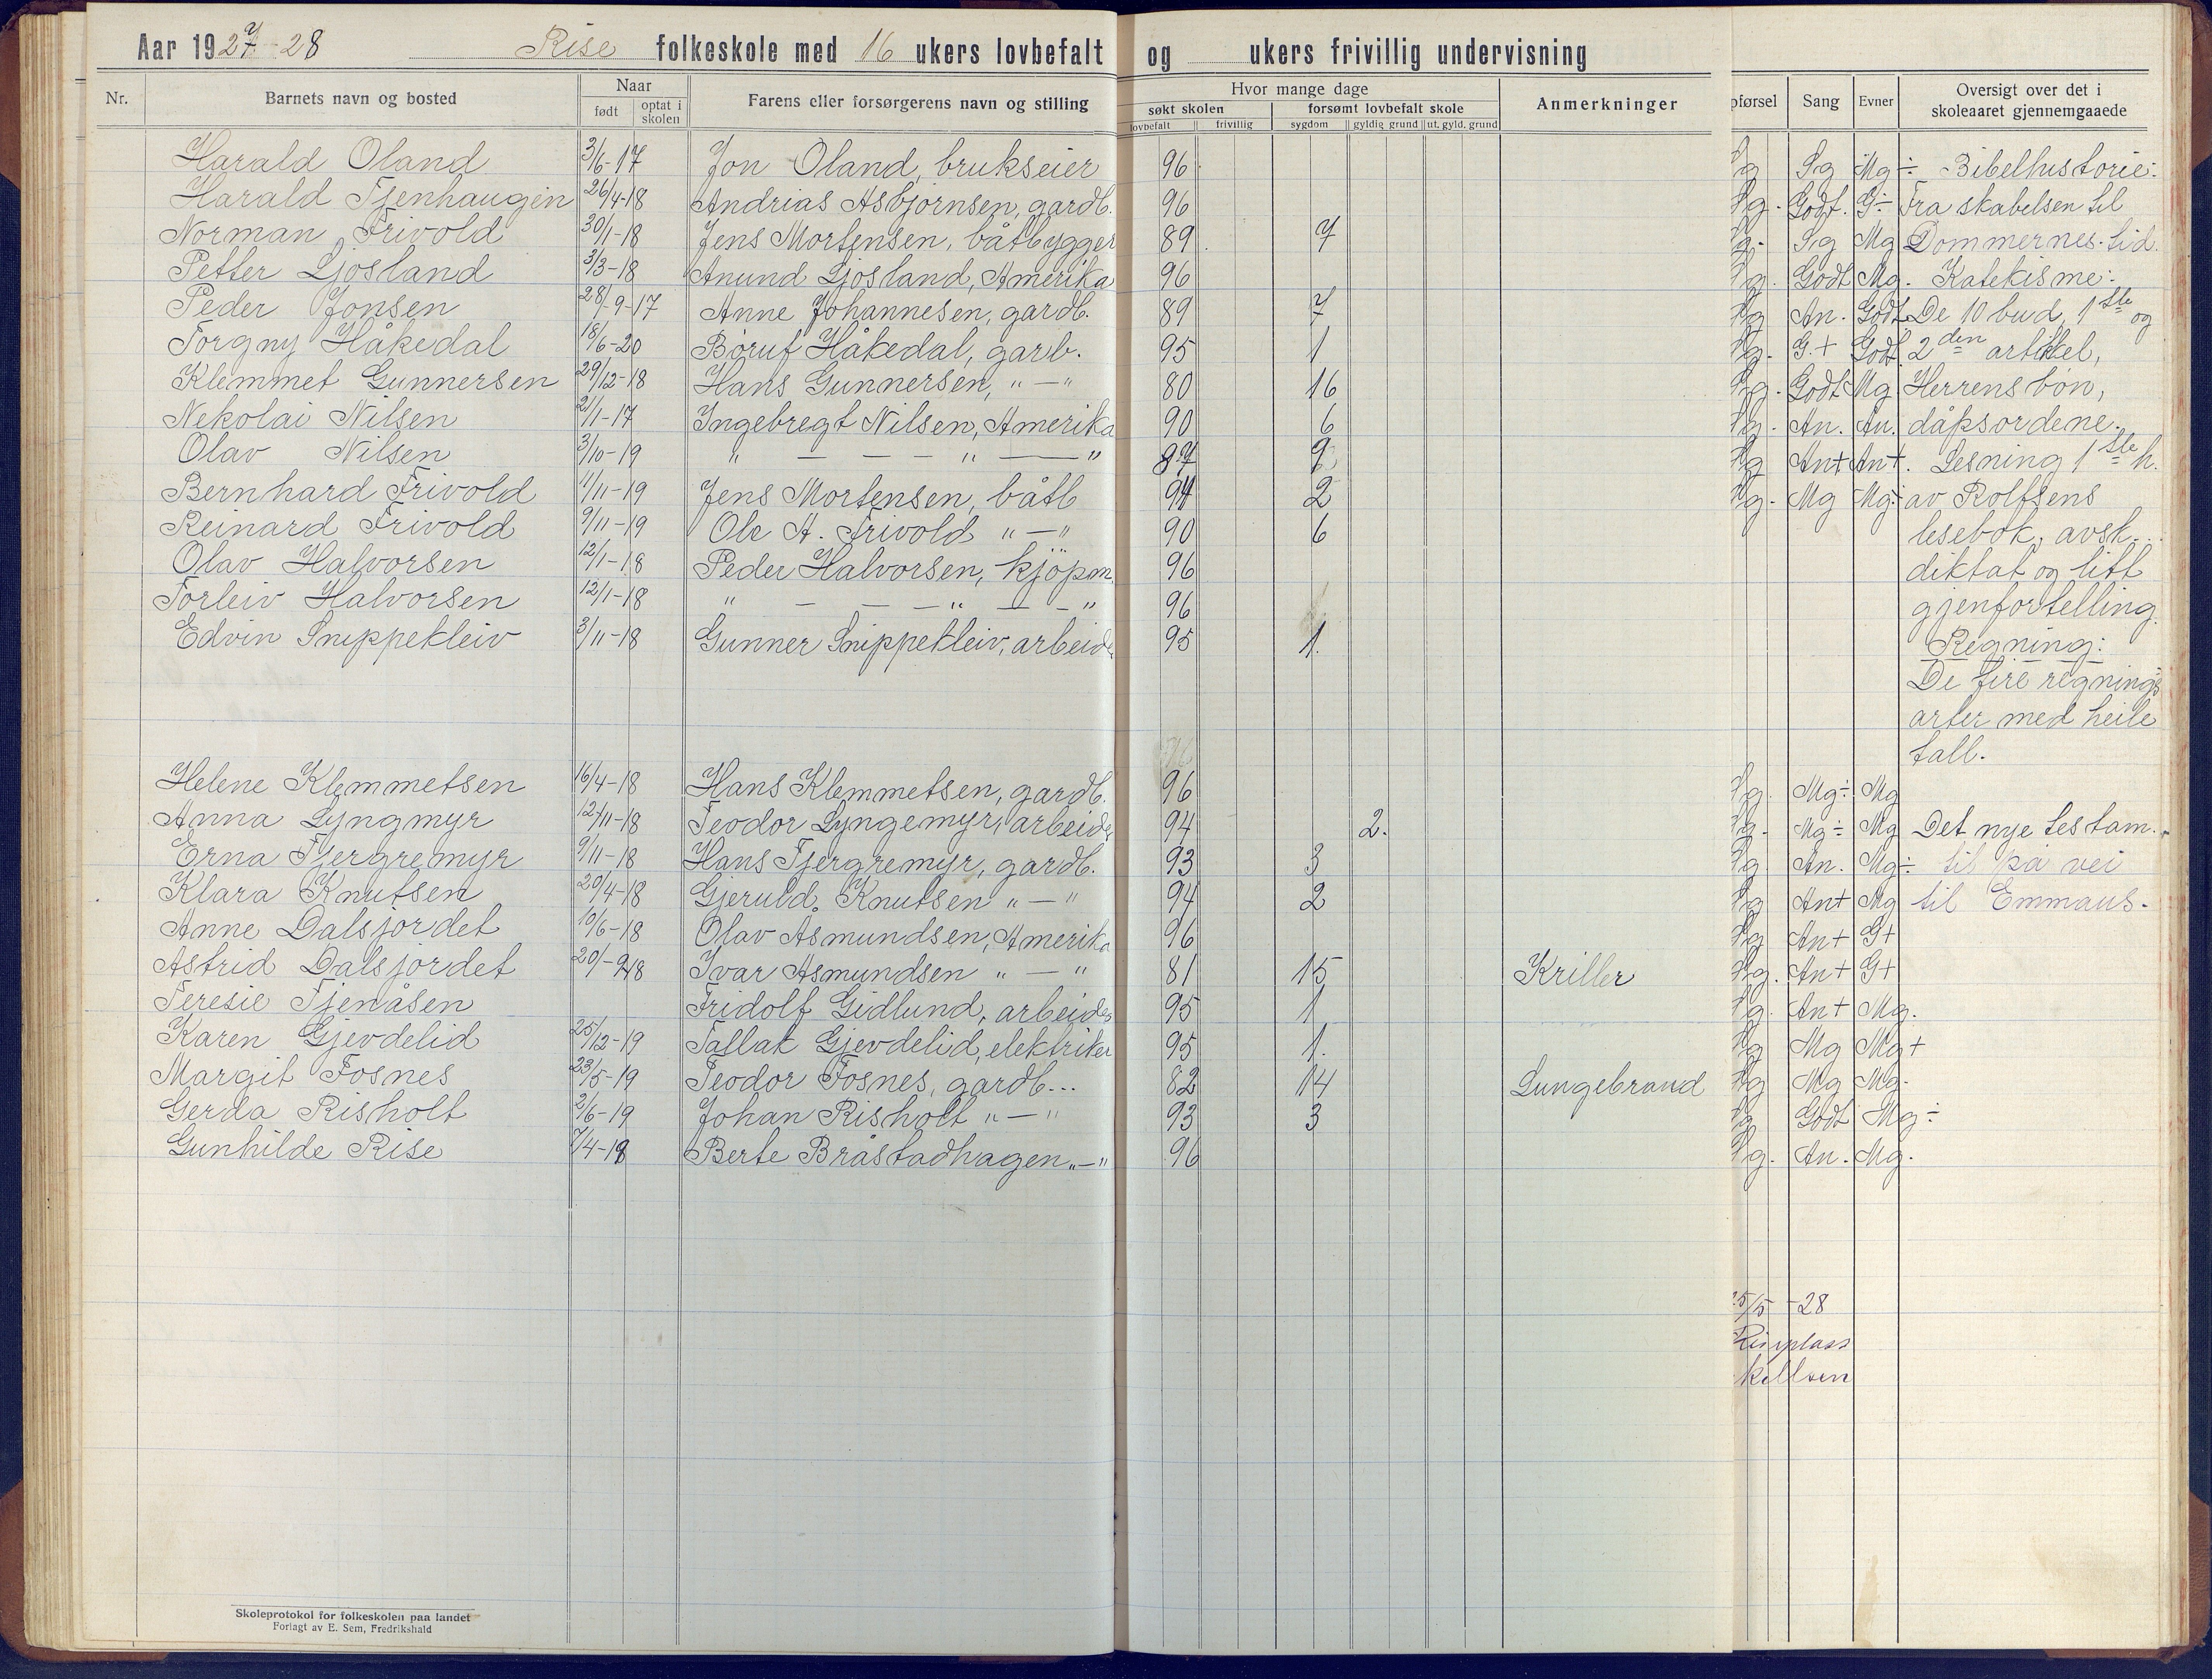 Aar 1927-28 Rise folkeskole med 16 ukers lovbefalt og ukers frivillig undervisning
Nr. Barnets navn og bosted Naar født optat i skolen Farens eller forsørgerens navn og stilling Hvor mange dage søkt skolen lovbefalt frivillig forsømt lovbefalt skole sygdom gyldig grund ut. gyld. grund Anmerkninger pførsel Sang Evner Oversigt over det i skoleaaret gjennemgaaede
Harald Oland 3/6-17 Jon Oland, brukseier 96 Sg Mg÷ Bibelhistorie:
Harald Tjenhaugen 26/4-18 Andrias Asbjørnsen, gardb. 96 Godt. G÷ Fra skabelsen til
Norman Trivold 30/1-18 Jens Mortensen, båtbygger 89 7 Sg Mg Dommernes. tid.
Petter Ljosland 3/3-18 Anund Ljosland, Amerika 96 Godt Mg. Katekisme:
Peder Jonsen 28/-9-17 Anne Johannesen, gardb. 89 7 An. Godt De 10 bud, 1ste og
Torgny Håkedal 18/6-20 Børuf Håkedal, garb. 95 1 G.+ Godt. 2den artikkel,
Klemmet Gunnersen 29/12-18 Hans Gunnersen, "—" 80 16 Godt Mg Herrens bøn,
Nekolai Nilsen 21/1-17 Ingebregt Nilsen, Amerika 90 6 An. An. dåpsordene.
Olav Nilsen 3/10-19 " — — — " — " 87 9 An+ An+. Lesning 1ste h.
Bernhard Trivold 11/11-19 Jens Mortensen, båtb 94 2 Mg Mg÷ av Rolfsens
Reinard Trivold 9/11-19 Ole A. Trivold "—" 90 6 lesebok, avsk...
Olav Halvorsen 12/1-18 Peder Halvorsen, kjöpm. 96 diktat og litt
Torleiv Halvorsen 12/1-18 " — — — " — — " 96 gjenfortelling.
Edvin Snippekleiv 3/11-18 Gunner Snippekleiv, arbeide 95 1. Regning:
De fire regnings
arter med heile
tall.
Helene Klemmetsen 16/4-18 Hans Klemmetsen, gardb. 96 Mg÷ Mg
Anna Lyngmyr 12/11-18 Teodor Lyngemyr, arbeide 94 2. Mg÷ Mg Det nye testam..
Erna Tjergremyr 9/11-18 Hans Tjergremyr, gardb. 93 3 An. Mg÷ til på vei
Klara Knutsen 20/4-18 Gjeruld. Knutsen "—" 94 2 An+ Mg til Emmaus.
Anne Dalsjordet 10/6-18 Olav Asmundsen, Amerika 96 An+ G+
Astrid Dalsjordet 20/-9-18 Ivar Asmundsen "—" 81 15 Kriller An+ G+
Teresie Tjenåsen Fridolf Gidlund, arbeider 95 1 An+ Mg.
Karen Gjevdelid 25/12-19 Tallak Gjevdelid, elektriker 95 1. Mg Mg+
Margit Fosnes 23/5-19 Teodor Fosnes, gardb... 82 14 Lungebrand Mg Mg.
Gerda Risholt 2/6-19 Johan Risholt "—" 93 3 Godt Mg÷
Gunhilde Rise 7/4-18 Berte Bråstadhagen "—" 96 An. Mg.
25/5 -28
Risplass
Skoleprotokol for folkeskolen paa landet
Forlagt av E. Sem, Fredrikshald